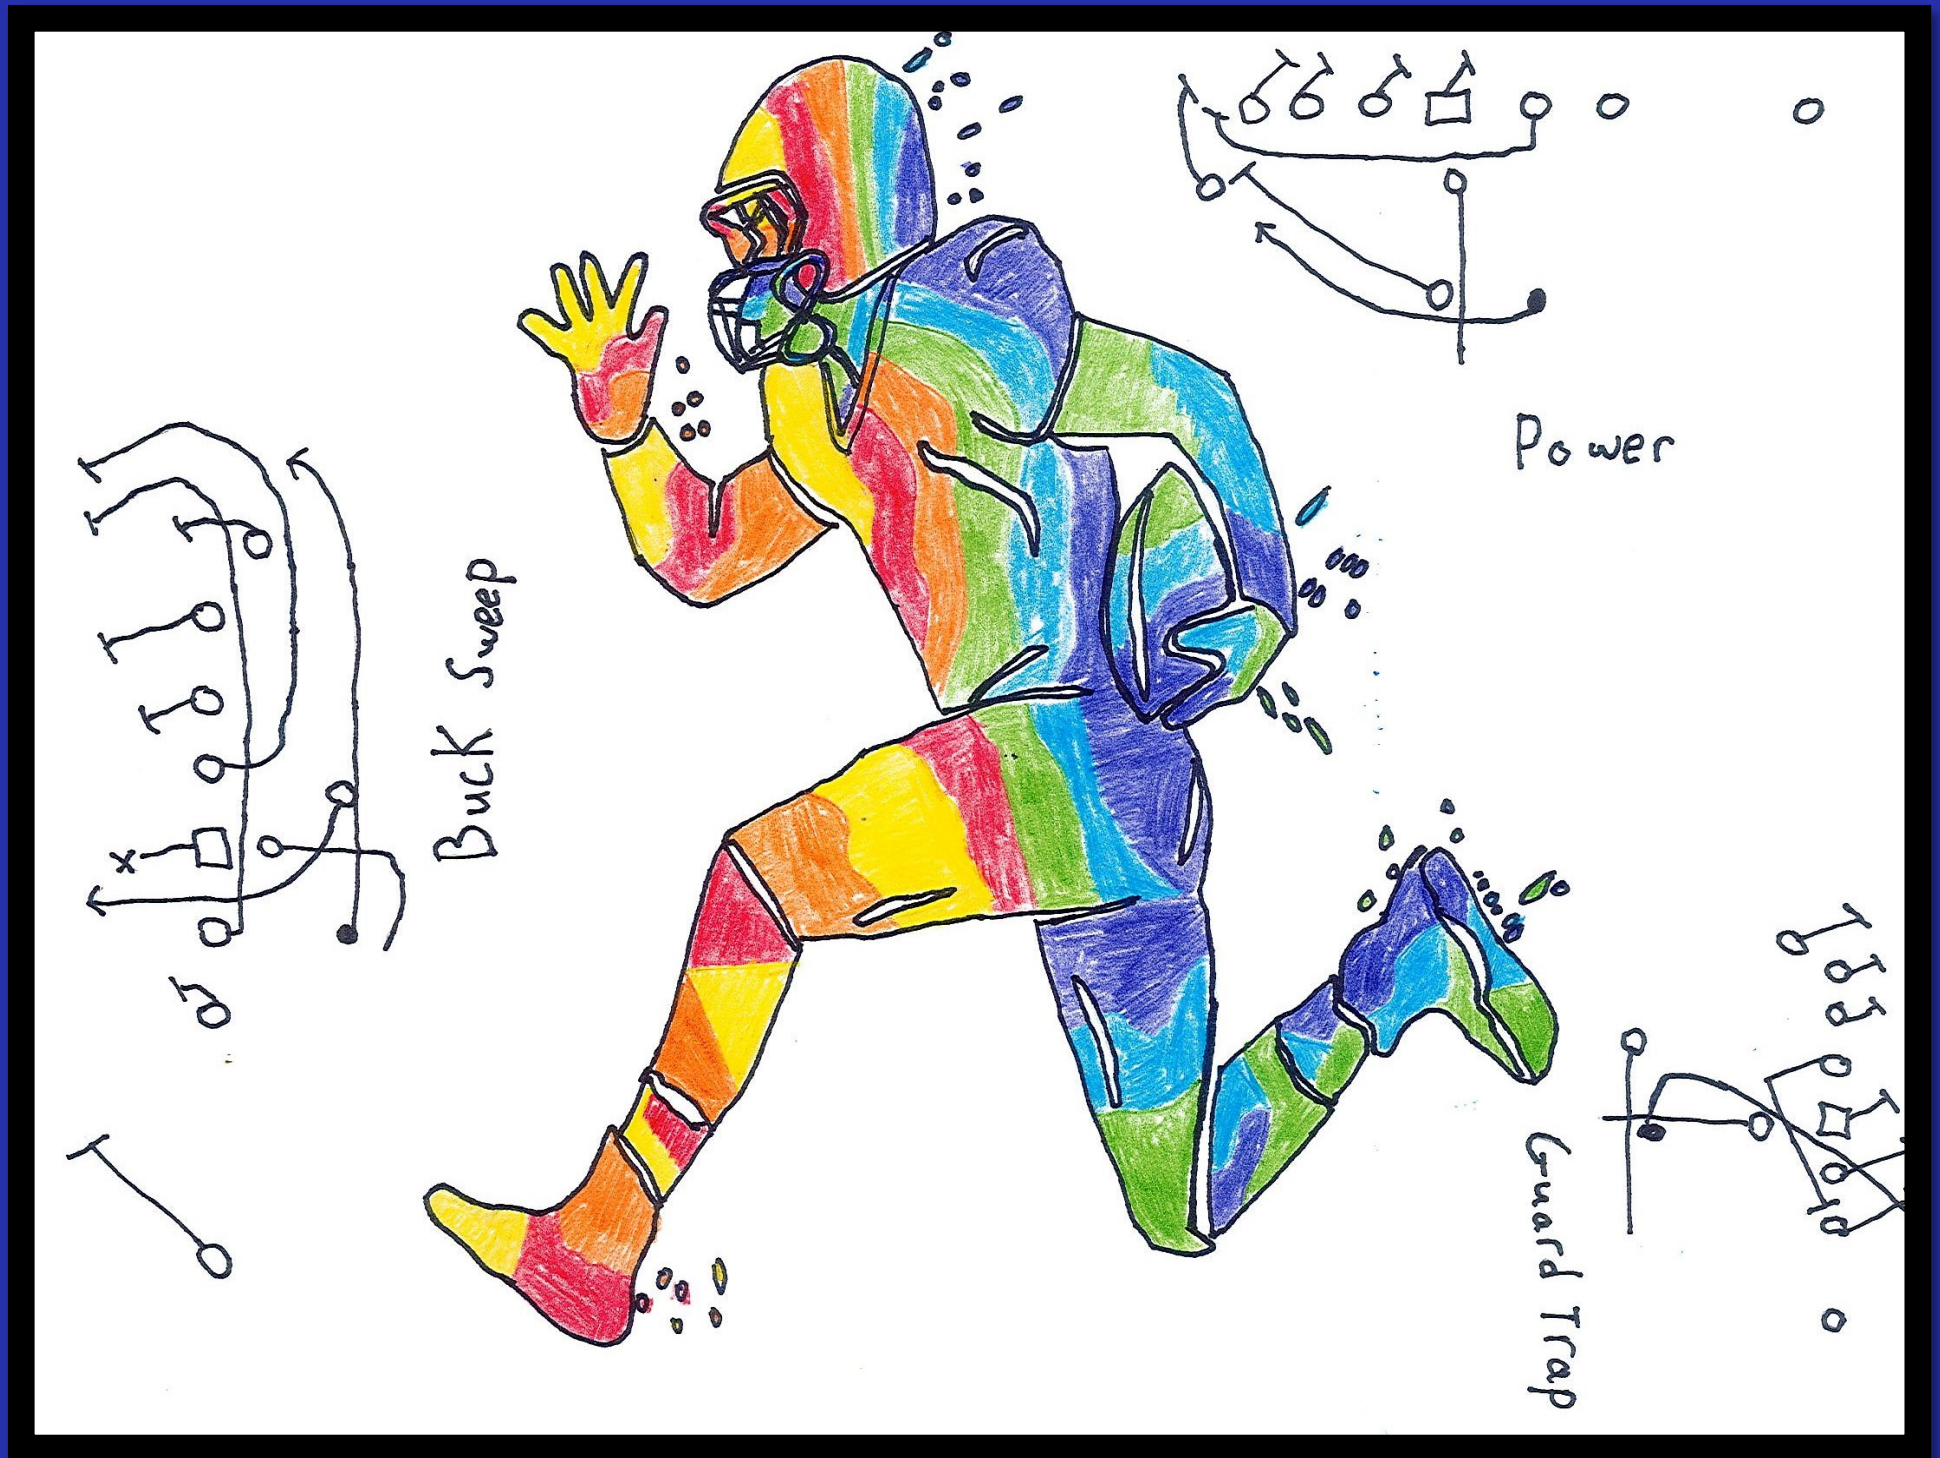 Power
Buck Sweep
Guard Trap